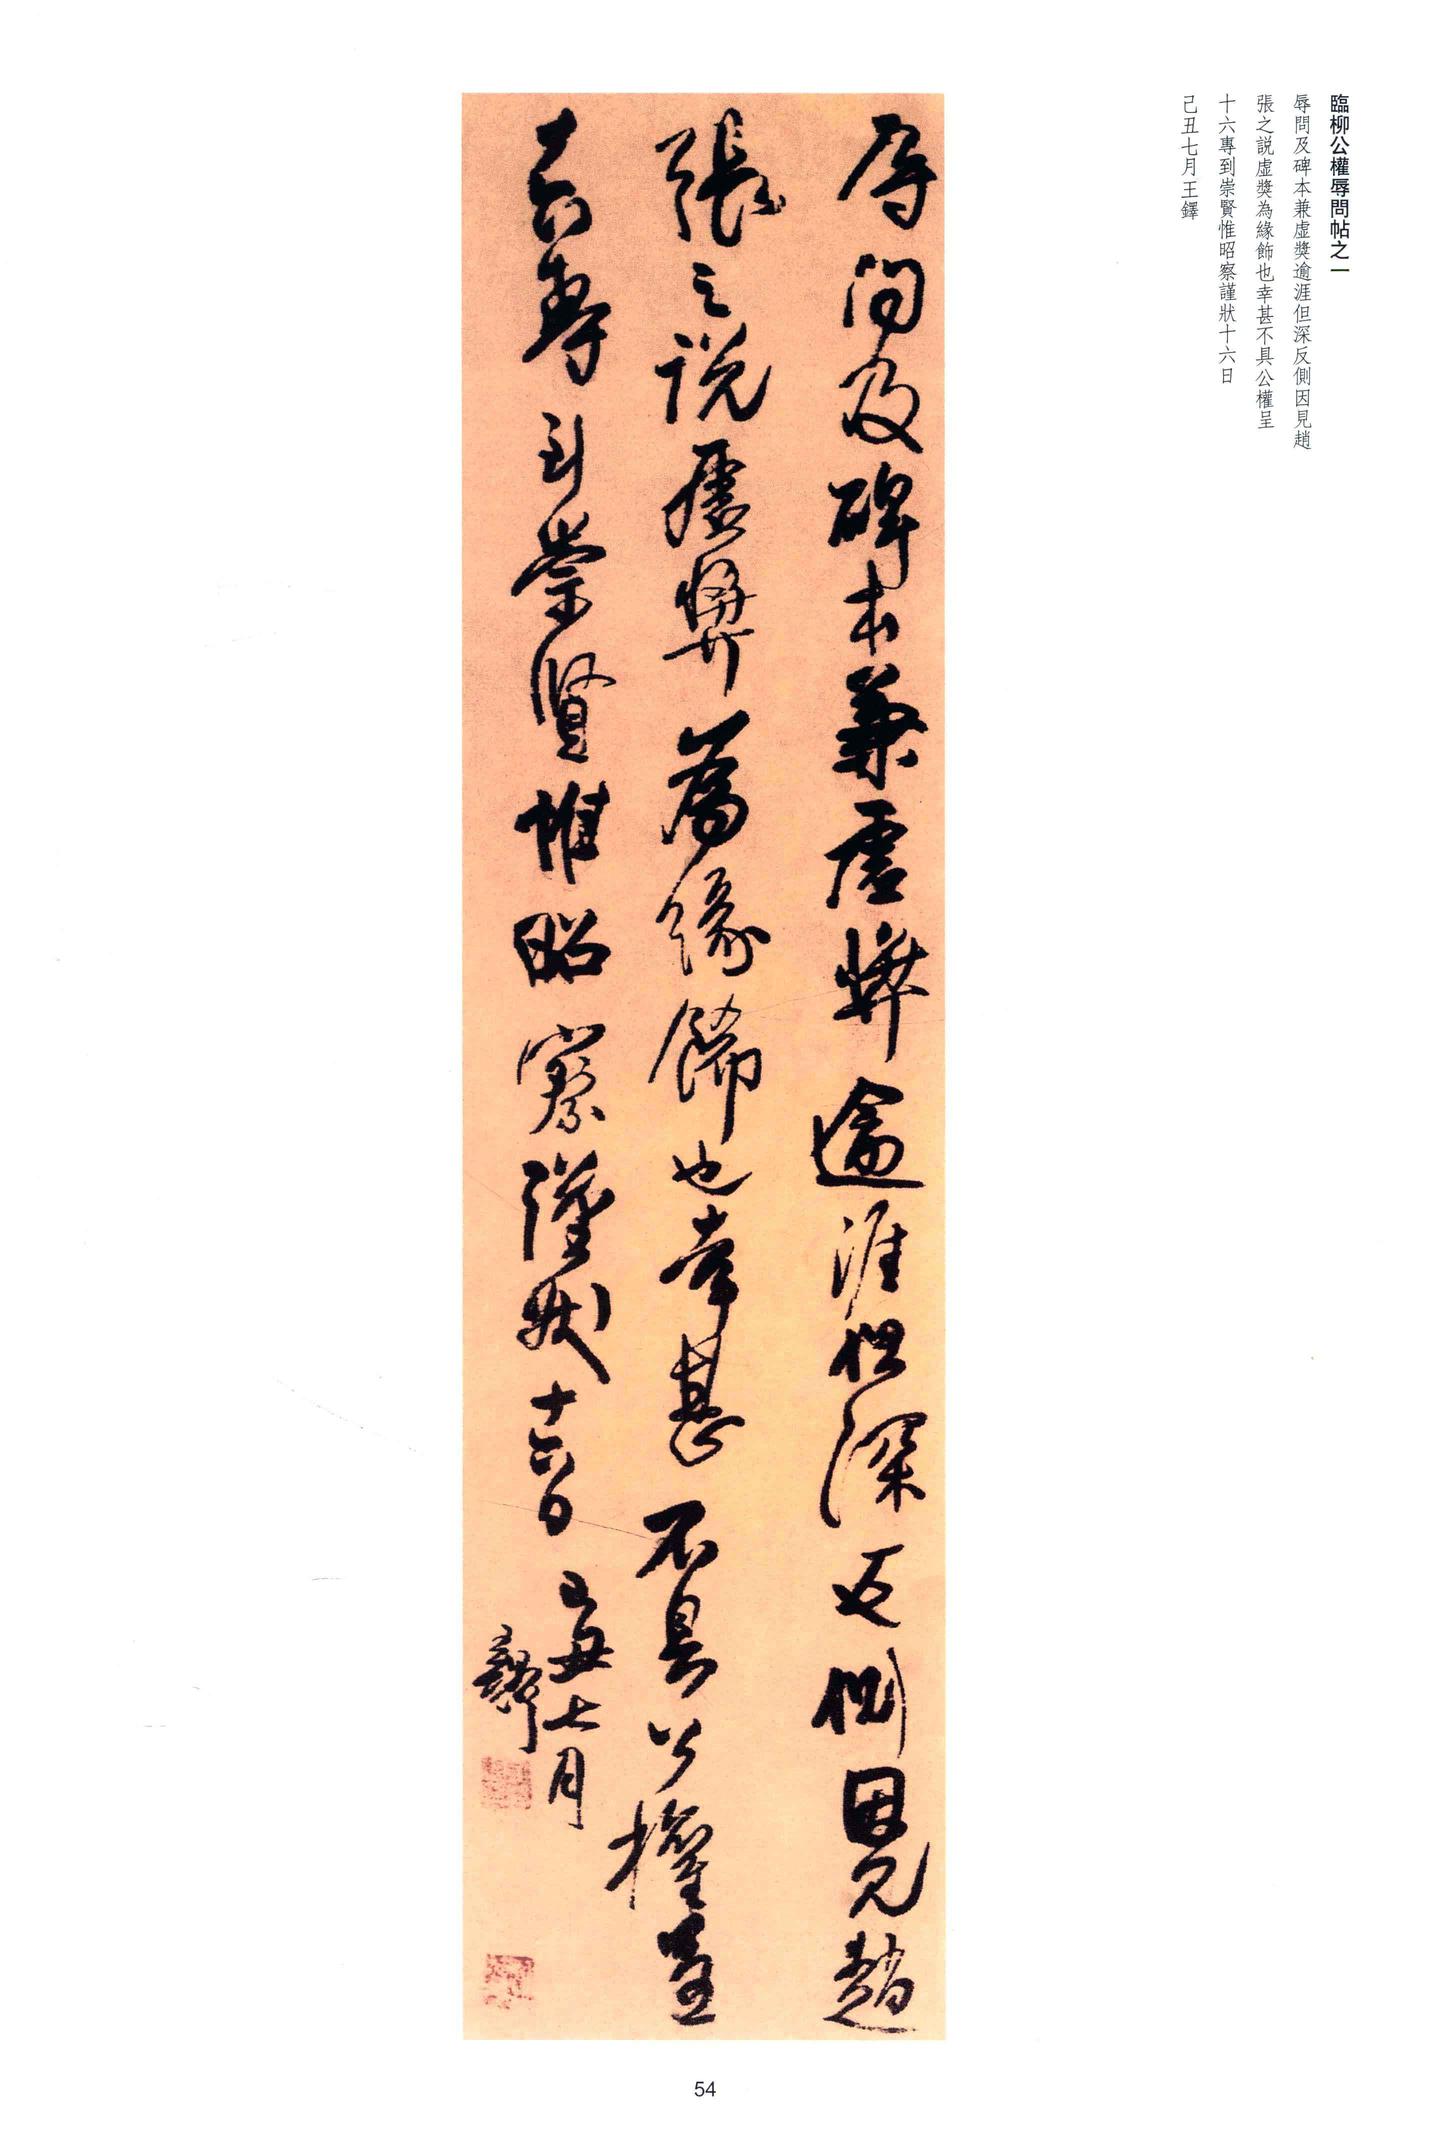 臨柳公權辱問帖之一
辱問及碑本兼虛獎逾涯但深反側因見趙
張之説虛獎為緣飾也幸甚不具公權呈
十六專到崇賢惟昭察謹狀十六日
己丑七月王鐸
辱問及碑本兼虛獎逾涯但深反側因見趙
張之説虛獎為緣飾也幸甚不具公權呈
十六專到崇賢惟昭察謹狀十六日 己丑七月
王鐸
54